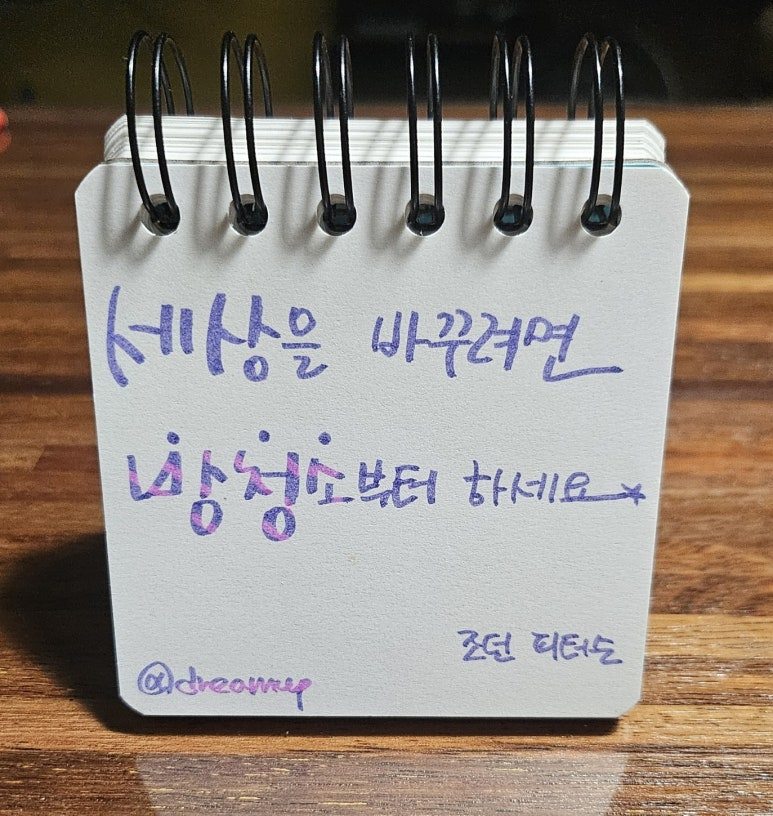 세상을 바꾸려면
방청소부터 하세요
조던 피터슨
@dreamup